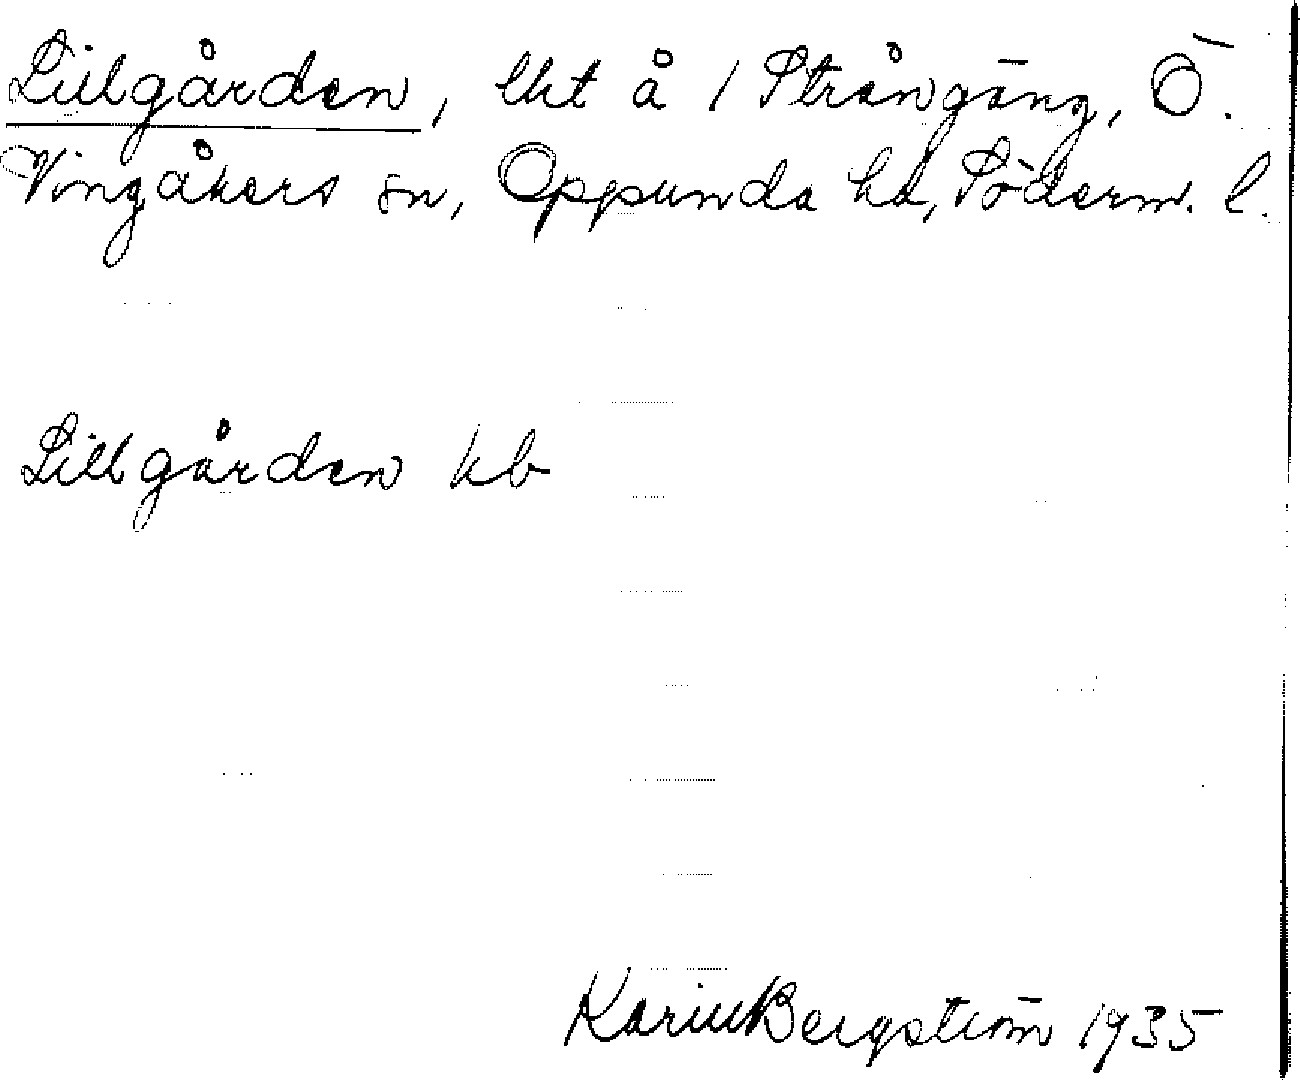 Lillgården, lht å 1 Strångäng, Ö.
Vingåkers sn, Oppunda hd, Söderm. l.
Lillgården kb
Karin Bergström 1935